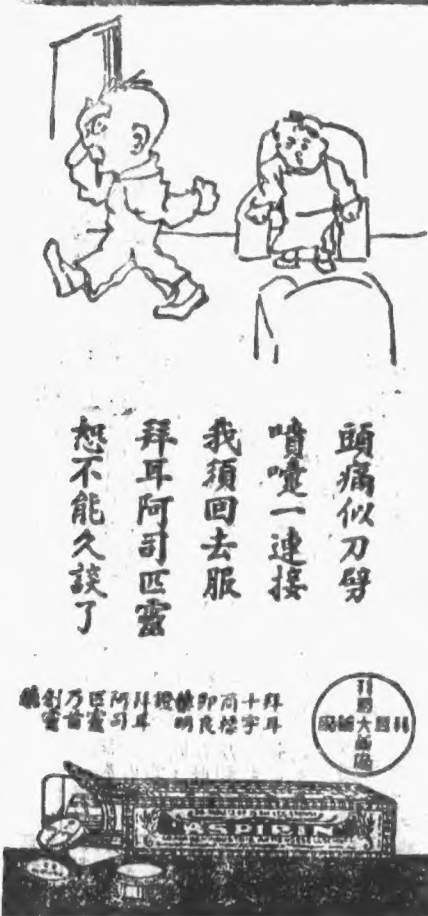 頭痛似刀劈
噴嚏一連接
我須回去服
拜耳阿司匹靈
恕不能久談了
拜耳
十字
商標
即良
藥明
證
拜耳
阿司
匹靈
万首
創靈
藥
ASPIRIN